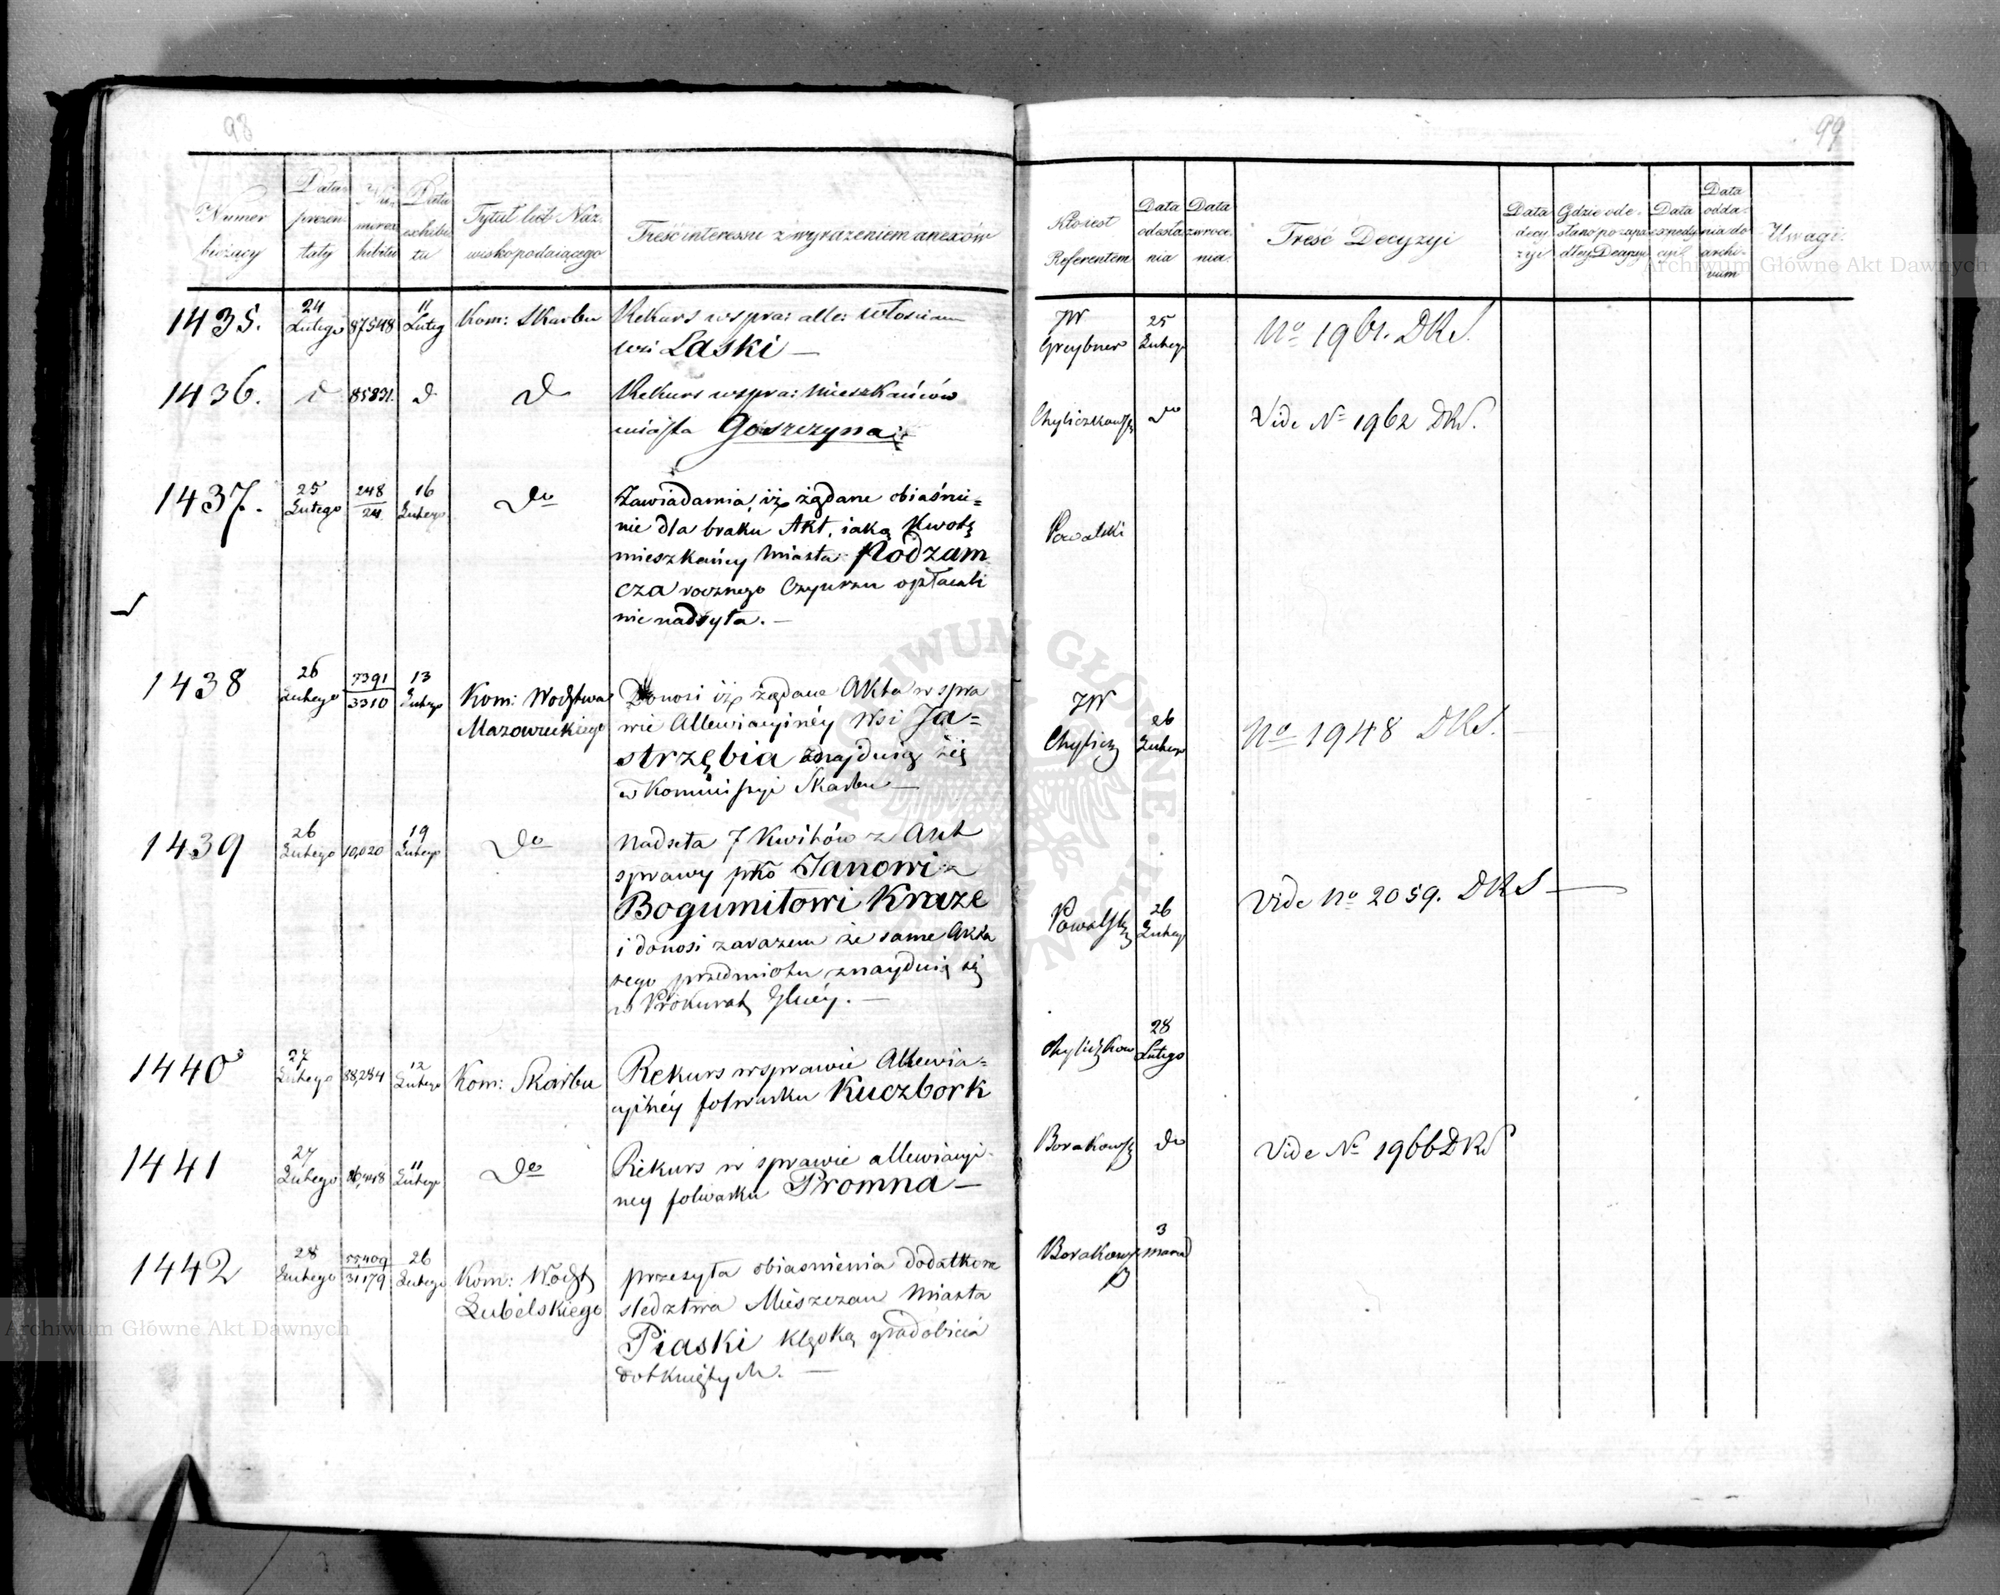 98
Numer bieżący
Data prezentaty
Numer exhibitu
Data exhibitu
Tytuł lub Nazwisko podaiącego
Treść interessu z wyrażeniem anexów
1435. 24 Lutego 87548 11 Luteg Kom: Skarbu Rekurs wspra: alle: włościan
wsi Laski —
1436. d 85831. d d Rekurs wspra: Mieszkańców
miasta Goszczyna
1437. 25 Lutego 248/24 16 Lutego do Zawiadamia, iż żądane obiaśnie=
nie dla braku Akt, iaką Kwotę
mieszkańcy Miasta Podzam
cza rocznego Czynszu opłacali
nie nadsyła. —
1438 26 Lutego 7391/3310 13 Lutego Kom: Wodztwa Donosi iż żądane Akta w spra
Mazowieckiego wie Allewiacyinéy Wsi Ja=
strzębia znajduią się
w Kommissyi Skarbu —
1439 26 Lutego 10,020 19 Lutego do Nadseła 7 Kwitów z Akt
sprawy pko Janowi
Bogumiłowi Kraze
i donosi zarazem że same Akta
tego przedmiotu znayduią się
w Prokurat. Głnéy. —
1440 27 Lutego 88,284 12 Lutego Kom: Skarbu Rekurs w sprawie Allewia=
cyinéy folwarku Kuczbork
1441 27 Lutego 11 Lutego do Rekurs w sprawie allewiacyi
ney folwarku Promna —
1442 28 Lutego 55409/31179 26 Lutego Kom: Wodzt przesyła obiasnienia dodatkowe
Lubelskiego sledztwa Mieszczan Miasta
Piaski klęską gradobicia
dotkniętych. —
99
Kto iest Referentem
Data odesłania
Data zwrócenia
Treść Decyzyi
Data decyzyi
Gdzie odesłano po zapadłey Decyzyi
Data expedycyi
Data oddania do archivum
Uwagi
JW Greybner 25 Lutego No 1961. DKS.
do Vide No 1962 DKS.
Powalski
JW Chylicz 26 Lutego No 1948 DKS.
Powalski 26 Lutego Vide No 2059. DKS —
Chyliczkow 28 Lutego
Borakowski do Vide No 1966 DKS
Borakowski 3 marca
ARCHIWUM GŁÓWNE AKT DAWNYCH
Archiwum Główne Akt Dawnych
Archiwum Główne Akt Dawnych